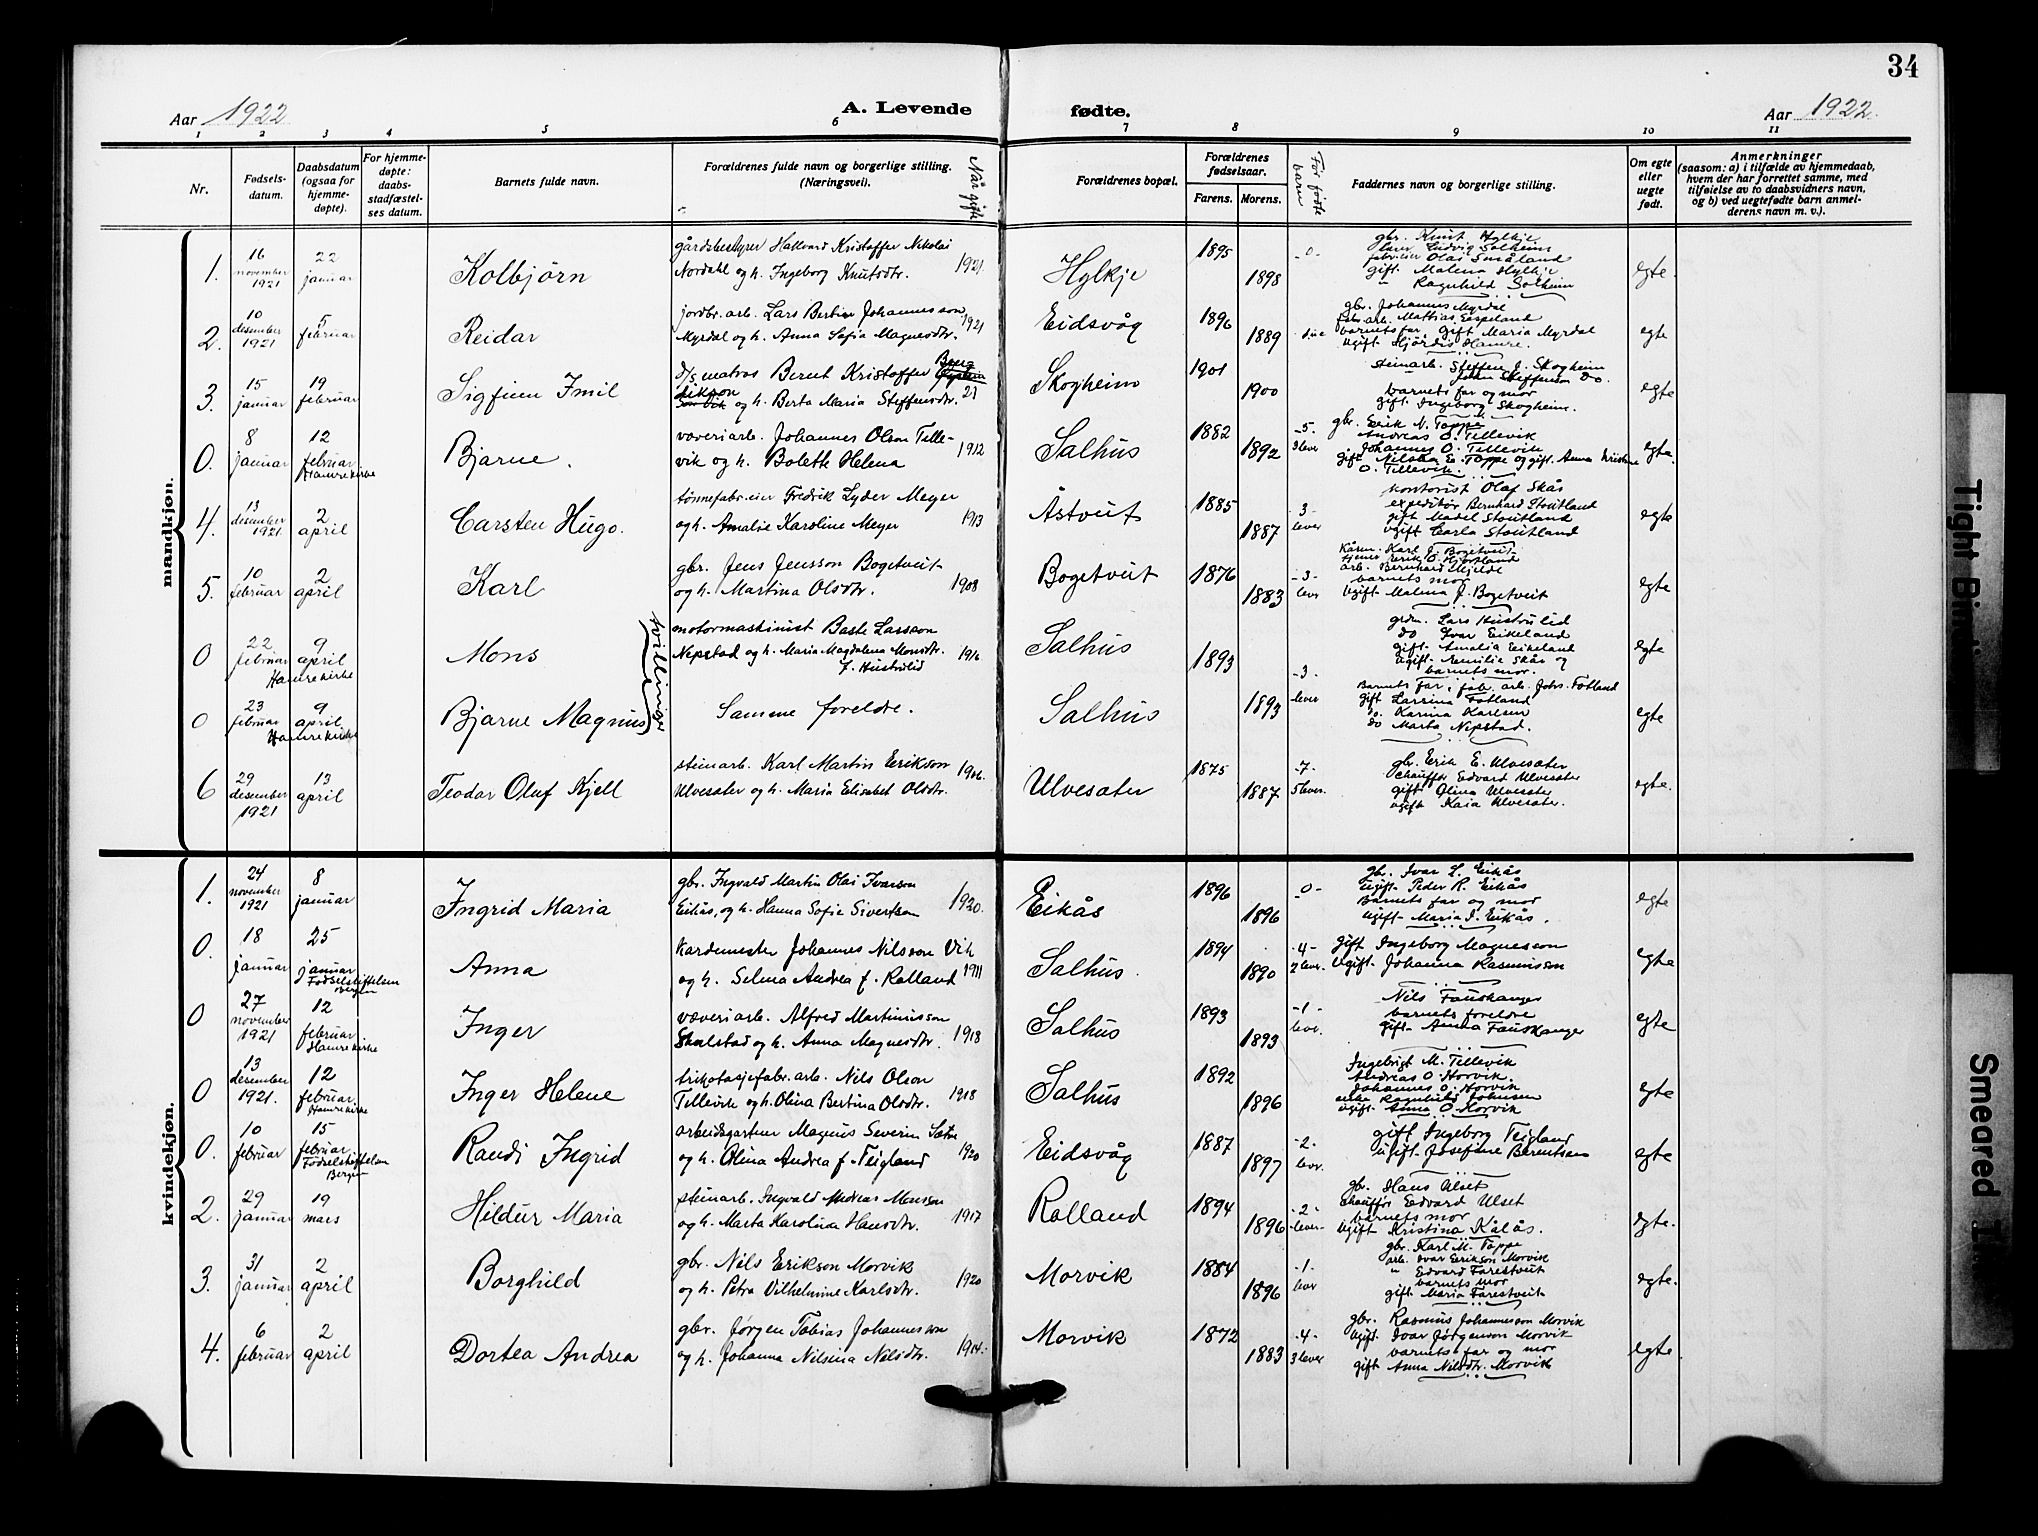 34
Aar 1922
A. Levende
fødte.
Aar 1922.
1 2 3 4 5 6 7 8 9 10 11
Nr.
Fødsels-
datum.
Daabsdatum
(ogsaa for
hjemme-
døpte).
For hjemme-
døpte:
daabs-
stadfæstel-
ses datum.
Barnets fulde navn.
Forældrenes fulde navn og borgerlige stilling.
(Næringsvei).
Når gift
Forældrenes bopæl.
Forældrenes
fødselsaar.
Farens. Morens.
Før fødte
barn
Faddernes navn og borgerlige stilling.
Om egte
eller
uegte
født.
Anmerkninger
(saasom: a) i tilfælde av hjemmedaab,
hvem der har forrettet samme, med
tilføielse av to daabsvidners navn,
og b) ved uegtefødte barn anmel-
derens navn m. v.).
mandkjøn.
1.
16
november
1921
22
januar
Kolbjörn
gårdsbestyrer Hallvard Kristoffer Nikolai
Nordahl og h. Ingeborg Knutsdtr.
1921
Hylkje
1895
1898
-0-
gbr. Knut Hylkje
Ludvig Solheim
Olai Småland
gift Malena Hylkje
" Ragnhild Solheim
egte.
2.
10
desember
1921
5
februar
Reidar
jordbr. arb. Lars Bertin Johannesson
Myrdal og h. Anna Sofia Magnesdtr.
1921
Eidsvåg
1896
1889
gbr. Johannes Myrdal
fabr. arb. Mattias Espeland
barnets far, gift Maria Myrdal
ugift Hjördis Hamre.
egte
3.
15
januar
19
februar
Sigfinn Imil
d/s matros Bernt Kristoffer
og h. Berta Maria Steffensdtr.
21
Skogheim
1901
1900
steinarb. Steffen J. Skogheim
Johan Steffenson do.
barnets far og mor
gift Ingeborg Skogheim.
egte
0.
8
januar
12
februar
Hamre kirke
Bjarne.
væveriarb. Johannes Olson Tille-
vik og h. Bolette Helena
1912
Salhus
1882
1892
-5-
3 lever
gbr. Erik N. Toppe
Andreas O. Tellevik
Johannes O. Tellevik
gift Nilsina E. Toppe og gift Anna Kristine
O. Tellevik.
egte.
4.
13
desember
1921.
2
april
Carsten Hugo.
tønnefabr. eier Fredrik Lyder Meyer
og h. Amalie Karoline Meyer
1913
Åstveit
1885
1887
-3-
lever
kontorist Olaf Skås
expeditör Bernhard Stoutland
gift Madel Stoutland
ugift Carla Stoutland
egte
5.
10
februar
2
april
Karl
gbr. Jens Jensson Bogetveit
og h. Martina Olsdtr.
1908
Bogetveit
1876
1883
-3-
lever
Kårm. Karl J. Bogetveit
tjener Erik O. Hjortland
arb. Bernhard Mjelde
barnets mor
Ugift Malena J. Bogetveit
egte
0
22
februar
9
april
Hamre kirke
Mons
tvillinger
motormaskinist Baste Larsson
Nepstad og h. Maria Magdalena Monsdtr.
f. Hustrulid
1916
Salhus
1893
-3-
grdm. Lars Hustrulid
do Ivar Eikeland
gift Amalia Eikeland
ugift Emilie Skår og
barnets mor.
egte
0
23
februar
9
april
Hamre kirke
Bjarne Magnus
Samme foreldre.
Salhus
1893
lever
Barnets far, fab. arb. Johs. Fotland
gift Larsina Fotland
do. Karina Karlsen
do Marta Nepstad.
egte
6
29
desember
1921
13
april
Teodor Oluf Kjell
steinarb. Karl Martin Erikson
Ulvesæter og h. Maria Elisabet Olsdtr.
1906.
Ulvesæter
1875
1887
-7-
5 lever.
gbr. Erik E. Ulvesæter
chauffør Edvard Ulvesæter
gift Olina Ulvesæter
ugift Kaia Ulvesæter.
egte.
kvindekjøn.
1.
24
november
1921
8
januar
Ingrid Maria
gbr. Ingvald Martin Olai Ivarson
Eikås, og h. Hanna Sofie Sivertsen
1920.
Eikås
1896
1896
-0-
gbr. Ivar L. Eikås
Ugift Peder R. Eikås
Barnets far og mor
Ugift Maria I. Eikås.
egte
0.
18
januar
25
januar
Fødselsstiftelsen
Bergen
Anna
Kardemester Johannes Nilsson Vik
og h. Selma Andrea f. Rolland
1911
Salhus.
1894
1890
-4-
2 lever.
gift Ingeborg Magnesson
Ugift Johanna Rasmusson
egte
0
27
november
1921
12
februar
Hamre kirke
Inger
væveriarb. Alfred Martinusson
Skulstad og h. Anna Magnesdtr.
1918
Salhus
1893
1893
-1-
lever.
Nils Fauskanger
barnets foreldre
gift Anna Fauskanger
egte
0
13
desember
1921.
12
februar
Hamre kirke
Inger Helene
trikotasjefabr. arb. Nils Olson
Tellevik og h. Olina Bertina Olsdtr.
1918
Salhus
1892
1896
Ingebrigt M. Tellevik
Andreas O. Horvik.
Johannes O. Horvik
enke Ragnhild Johnsen
ugift Anna O. Horvik
egte
0.
10
februar
15
februar
Fødselsstiftelsen
Bergen
Randi Ingrid
arbeidsgartner Magnus Severin Sætre
og h. Olina Andrea f. Teigland
1920
Eidsvåg
1887
1897
-2-
lever.
gift Ingeborg Teigland
ugift Josefine Berentsen
egte
2.
29
januar
19
mars
Hildur Maria
steinarb. Ingvald Andreas Monsson
og h. Marta Karolina Hansdtr.
1917
Rolland
1894
1896
-2-
lever
gbr. Hans Ulset
Chauffør Edvard Ulset
barnets mor
Ugift Kristina Kålås.
egte.
3.
31
januar
2
april
Borghild
gbr. Nils Erikson Morvik
og h. Petra Vilhelmine Karlsdtr.
1920
Morvik
1884
1896
-1-
lever
gbr. Karl M. Toppe
arb. Ivar Erikson Morvik
" Edvard Farestveit
barnets mor
gift Maria Farestveit
egte.
4.
6
februar
2
april
Dortea Andrea
gbr. Jørgen Tobias Johannesson
og h. Johanna Nilsina Nilsdtr.
1914.
Morvik
1872
1883
-4-
3 lever
gbr. Rasmus Johannesson Morvik
Ugift Ivar Jørgenson Morvik
barnets far og mor
gift Anna Nilsdtr. Morvik
egte.
Tight Bin
Smeared